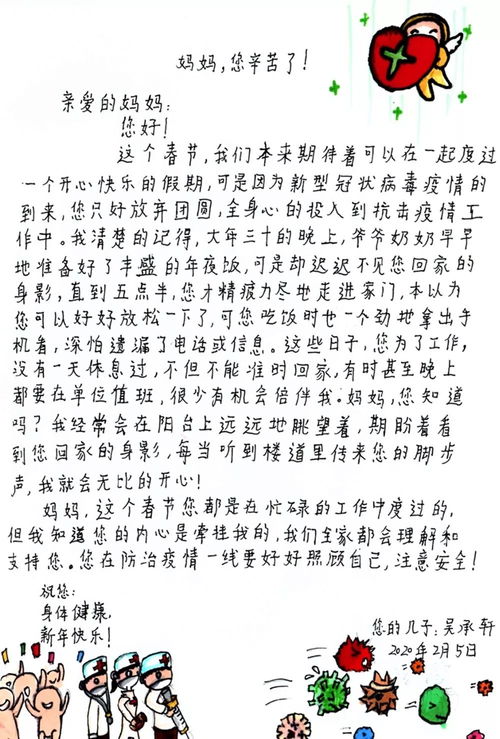 妈妈,您辛苦了!
亲爱的妈妈:
您好!
这个春节,我们本来期待着可以在一起度过
一个开心快乐的假期,可是因为新型冠状病毒疫情的
到来,您只好放弃团圆,全身心的投入到抗击疫情工
作中。我清楚的记得,大年三十的晚上,爷爷奶奶早早
地准备好了丰盛的年夜饭,可是却迟迟不见您回家的
身影,直到五点半,您才精疲力尽地走进家门,本以为
您可以好好放松一下了,可您吃饭时也一个劲地拿出手
机看,深怕遗漏了电话或信息。这些日子,您为了工作,
没有一天休息过,不但不能准时回家,有时甚至晚上
都要在单位值班,很少有机会陪伴我。妈妈,您知道
吗?我经常会在阳台上远远地眺望着,期盼着看
到您回家的身影,每当听到楼道里传来您的脚步
声,我就会无比的开心!
妈妈,这个春节您都是在忙碌的工作中度过的,
但我知道您的内心是牵挂我的,我们全家都会理解和
支持您。您在防治疫情一线要好好照顾自己,注意安全!
祝您:
身体健康,
新年快乐!
您的儿子:吴承轩
2020年2月5日